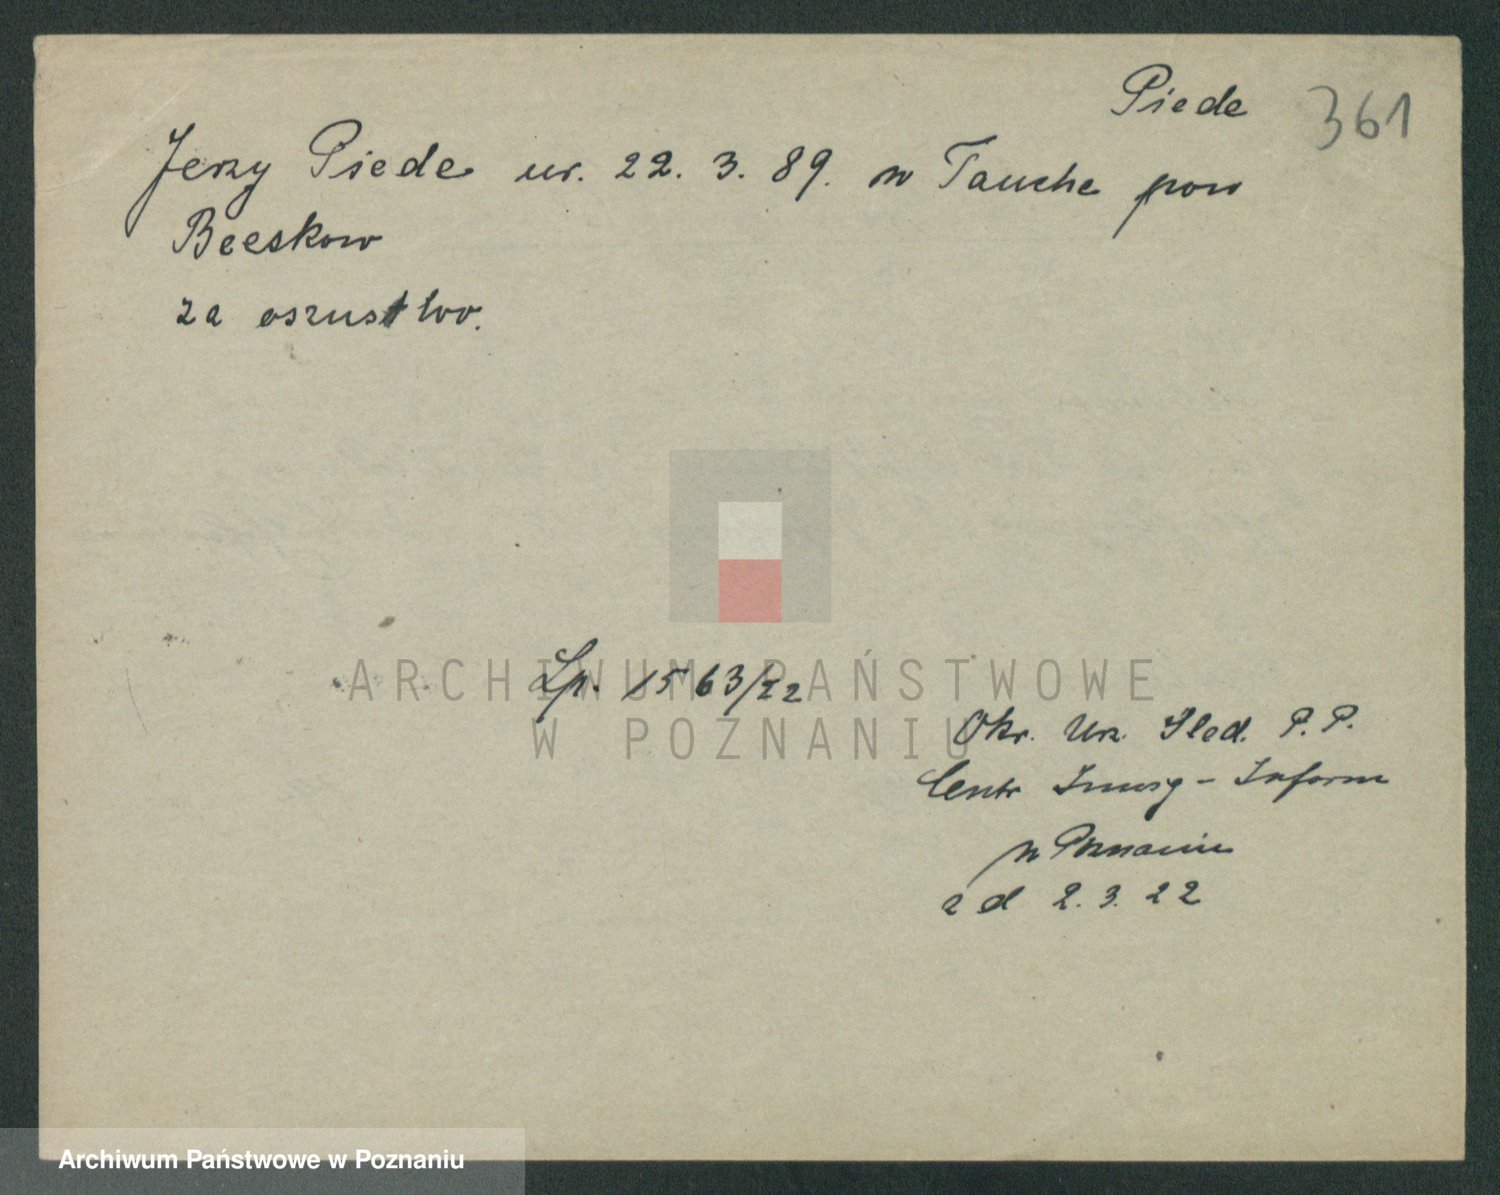 Piede 361
Jerzy Piede ur. 22. 3. 89. w Tauche pow
Beeskow
za oszustwo.
ARCHIWUM PAŃSTWOWE
W POZNANIU
Lp. 1563/22
Okr. Urz. Sled. P. P.
Centr Inwig - Inform
w Poznaniu
z d 2. 3. 22
Archiwum Państwowe w Poznaniu